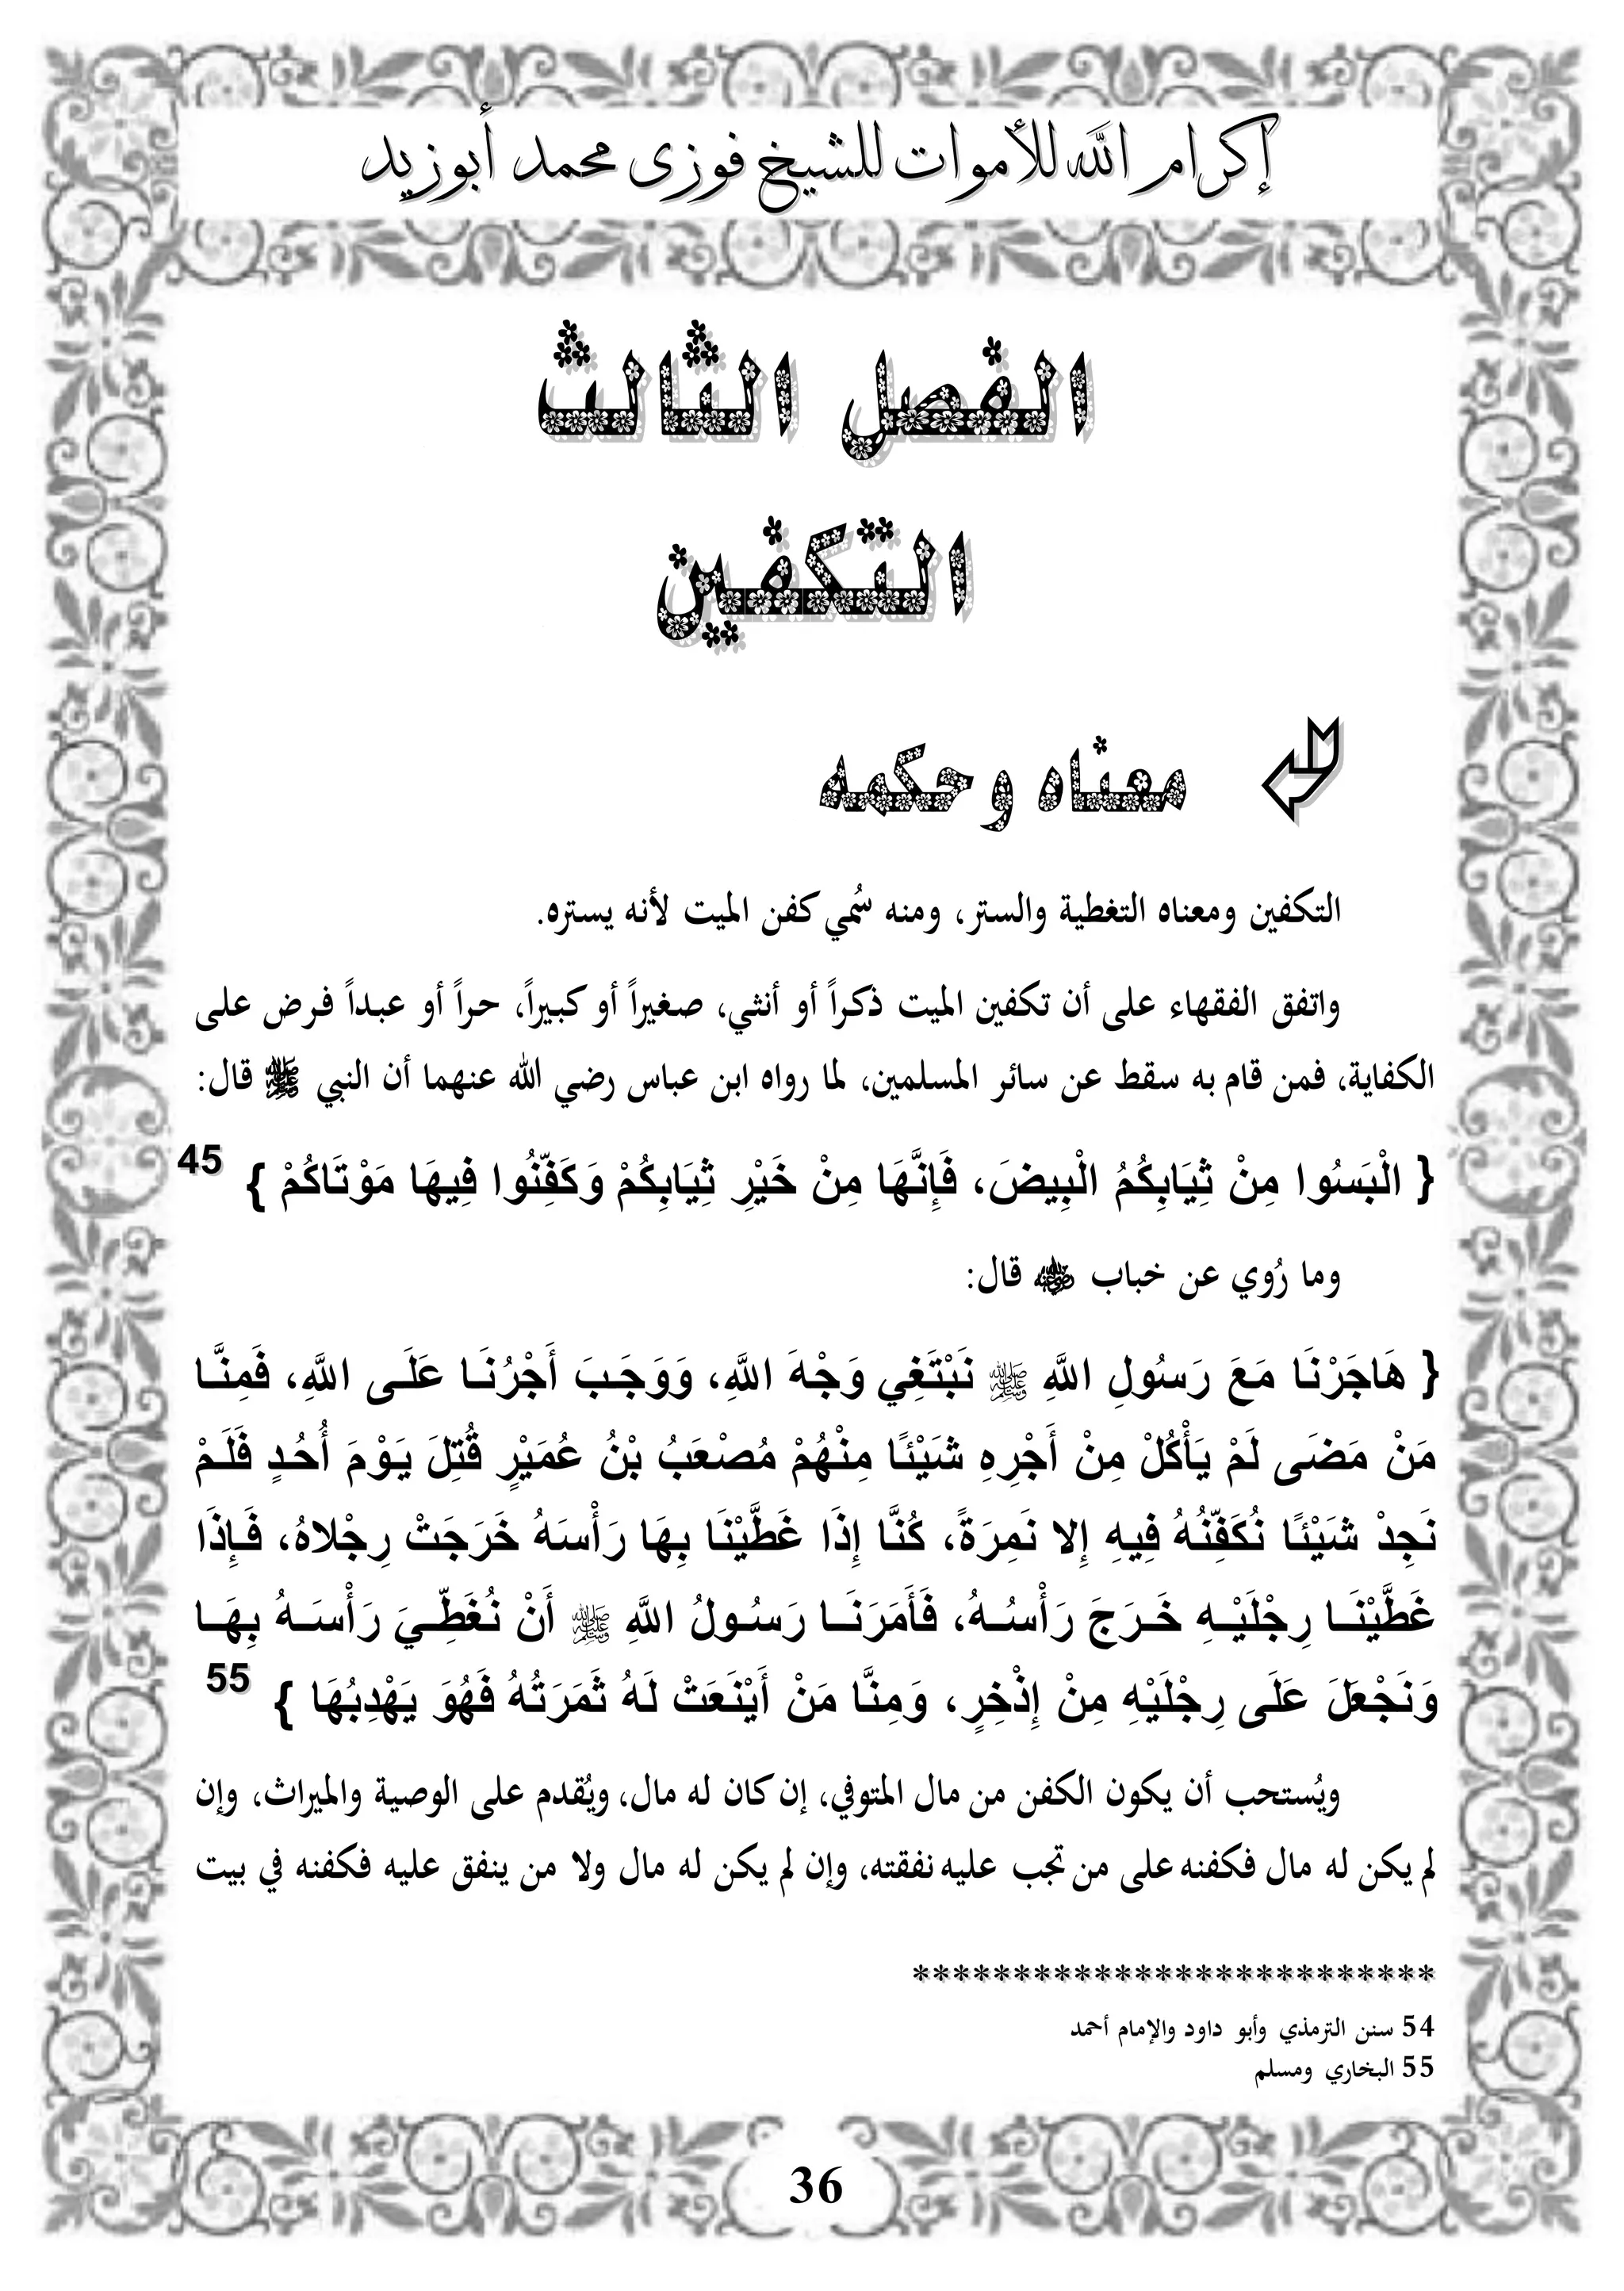 إكرام الله للأموات للشيخ فوزى محمد أبوزيد
الفصل الثالث
التكفين
معناه وحكمه
التكفين ومعناه التغطية والستر، ومنه سُمي كفن الميت لأنه يستره.
واتفق الفقهاء على أن تكفين الميت ذكراً أو أنثي، صغيراً أو كبيراً، حراً أو عبداً فرض على
الكفاية، فمن قام به سقط عن سائر المسلمين، لما رواه ابن عباس رضي الله عنهما أن النبي ﷺ قال:
{ الْبَسُوا مِنْ ثِيَابِكُمُ الْبِيضَ، فَإِنَّهَا مِنْ خَيْرِ ثِيَابِكُمْ وَكَفِّنُوا فِيهَا مَوْتَاكُمْ } 45
وما رُوي عن خباب رضي الله عنه قال:
{ هَاجَرْنَا مَعَ رَسُولِ اللَّهِ ﷺ نَبْتَغِي وَجْهَ اللَّهِ، وَوَجَبَ أَجْرُنَا عَلَى اللَّهِ، فَمِنَّا
مَنْ مَضَى لَمْ يَأْكُلْ مِنْ أَجْرِهِ شَيْئًا مِنْهُمْ مُصْعَبُ بْنُ عُمَيْرٍ قُتِلَ يَوْمَ أُحُدٍ فَلَمْ
نَجِدْ شَيْئًا نُكَفِّنُهُ فِيهِ إِلا نَمِرَةً، كُنَّا إِذَا غَطَّيْنَا بِهَا رَأْسَهُ خَرَجَتْ رِجْلاهُ، فَإِذَا
غَطَّيْنَا رِجْلَيْهِ خَرَجَ رَأْسُهُ، فَأَمَرَنَا رَسُولُ اللَّهِ ﷺ أَنْ نُغَطِّيَ رَأْسَهُ بِهَا
وَنَجْعَلَ عَلَى رِجْلَيْهِ مِنْ إِذْخِرٍ، وَمِنَّا مَنْ أَيْنَعَتْ لَهُ ثَمَرَتُهُ فَهُوَ يَهْدِبُهَا } 55
ويُستحب أن يكون الكفن من مال المتوفي، إن كان له مال، ويُقدم على الوصية والميراث، وإن
لم يكن له مال فكفنه على من تجب عليه نفقته، وإن لم يكن له مال ولا من ينفق عليه فكفنه في بيت
**************************
54 سنن الترمذي وأبو داود والإمام أحمد
55 البخاري ومسلم
36